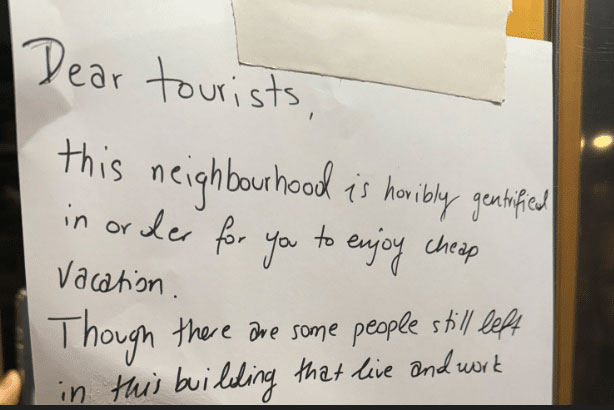 Dear tourists,
this neighbourhood is horibly gentrified
in order for you to enjoy cheap
vacation.
Though there are some people still left
in this building that live and work